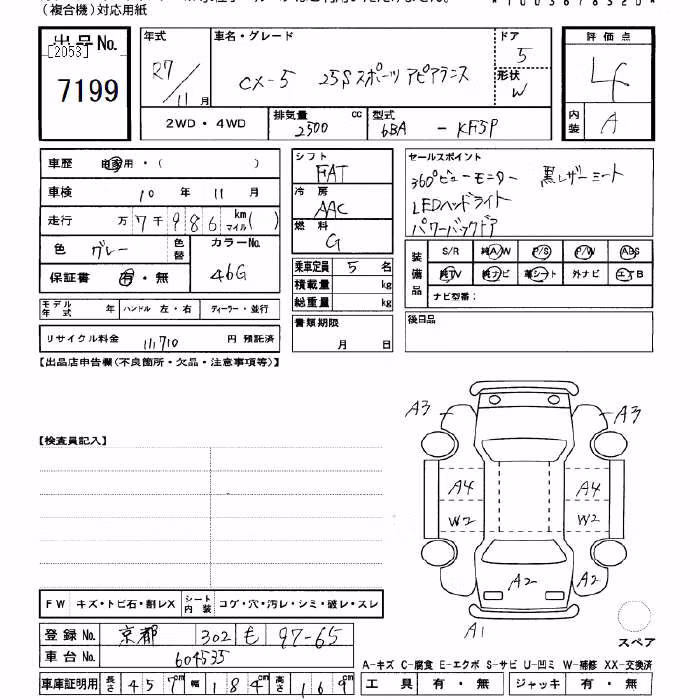 （複合機）対応用紙
出品No. [2053] 7199
年式 R7/11月
車名・グレード CX-5 25Sスポーツアピアランス
ドア 5
形状 W
評価点 4
内装 A
2WD・4WD
排気量 2500 cc
型式 6BA - KF5P
車歴 自家用・( )
車検 10年 11月
走行 万7千986km マイル( )
色 グレー 色替
カラーNo. 46G
保証書 有・無
モデル年式 年 ハンドル 左・右 ディーラー・並行
リサイクル料金 11,710 円 預託済
シフト FAT
冷房 AAC
燃料 G
乗車定員 5名
積載量 kg
総重量 kg
書類期限 月 日
セールスポイント
360°ビューモニター 黒レザーシート
LEDヘッドライト
パワーバックドア
装備品 S/R 純A/W P/S P/W ABS
純TV 純ナビ 革シート 外ナビ エアB
ナビ型番：
後日品
【出品店申告欄（不良箇所・欠品・注意事項等）】
【検査員記入】
A3 A3
A4 A4
W2 W2
A2 A2
A1
スペア
FW キズ・トビ石・割レX シート内装 コゲ・穴・汚レ・シミ・破レ・スレ
登録No. 京都 302 も 97-65
車台No. 604535
A-キズ C-腐食 E-エクボ S-サビ U-凹ミ W-補修 XX-交換済
車庫証明用 長さ 457cm 幅 184cm 高さ 169cm
工具 有・無 ジャッキ 有・無